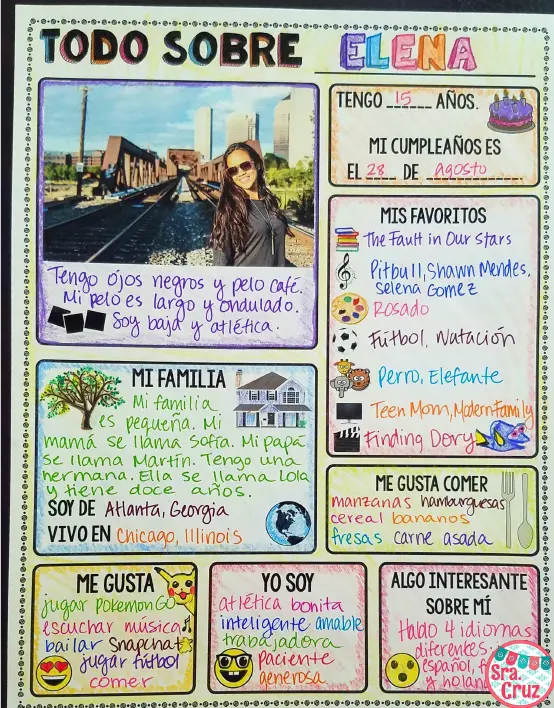 TODO SOBRE ELENA
Tengo ojos negros y pelo café.
Mi pelo es largo y ondulado.
Soy baja y atlética.
TENGO 15 AÑOS.
MI CUMPLEAÑOS ES
EL 28 DE agosto
MIS FAVORITOS
The Fault in Our Stars
Pitbull, Shawn Mendes,
Selena Gomez
Rosado
Fútbol, Natación
Perro, Elefante
Teen Mom, Modern Family
Finding Dory
MI FAMILIA
Mi familia
es pequeña. Mi
mamá se llama Sofía. Mi papá
se llama Martín. Tengo una
hermana. Ella se llama Lola
y tiene doce años.
SOY DE Atlanta, Georgia
VIVO EN Chicago, Illinois
ME GUSTA COMER
manzanas hamburguesas
cereal bananos
fresas carne asada
ME GUSTA
jugar Pokemon GO
escuchar música
bailar Snapchat
jugar fútbol
comer
YO SOY
atlética bonita
inteligente amable
trabajadora
paciente
generosa
ALGO INTERESANTE
SOBRE MÍ
Hablo 4 idiomas
diferentes.
español,
y
Sra.
Cruz